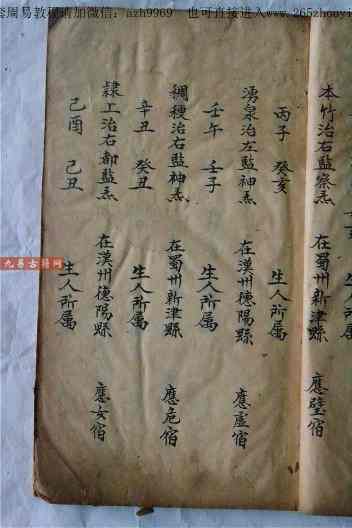 套周易教程请加微信：azh9969 也可直接进入www.265zhouyi
本竹治右監察炁 在蜀州新津縣 應壁宿
丙子 癸亥 生人所属
湧泉治左監神炁 在漢州德陽縣 應虛宿
壬午 壬子 生人所属
稠稉治右監神炁 在蜀州新津縣 應危宿
辛丑 癸丑 生人所属
隸上治右都監炁 在漢州德陽縣 應女宿
己酉 己丑 生人所属
九易古籍网